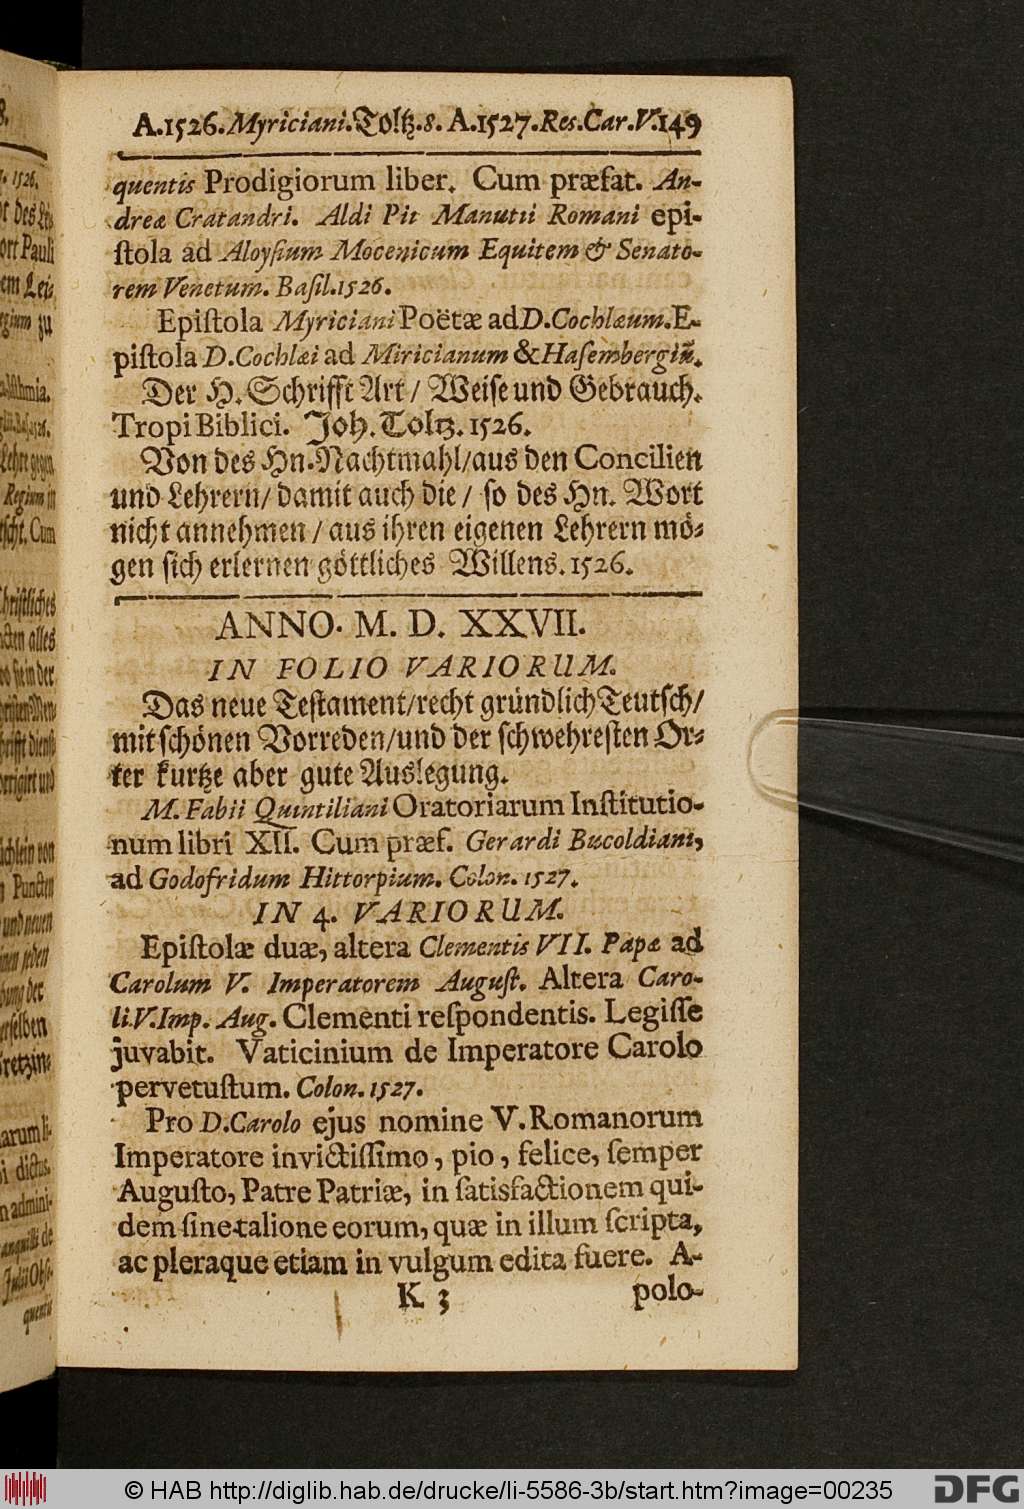 A.1526.Myriciani.Toltz.8. A.1527.Res.Car.V.149
quentis Prodigiorum liber. Cum præfat. An-
dreæ Cratandri. Aldi Pii Manutii Romani epi-
ſtola ad Aloyſium Mocenicum Equitem & Senato-
rem Venetum. Baſil.1526.
Epiſtola Myriciani Poëtæ ad D.Cochlæum. E-
piſtola D.Cochlæi ad Miricianum & Haſembergiũ.
Der H. Schrifft Art / Weiſe und Gebrauch.
Tropi Biblici. Joh. Toltz. 1526.
Von des Hn. Nachtmahl/aus den Concilien
und Lehrern/ damit auch die / ſo des Hn. Wort
nicht annehmen / aus ihren eigenen Lehrern mö-
gen ſich erlernen göttliches Willens. 1526.
ANNO. M. D. XXVII.
IN FOLIO VARIORUM.
Das neue Teſtament/recht gründlich Teutſch/
mit ſchönen Vorreden/und der ſchwehreſten Or-
ter kurtze aber gute Auslegung.
M. Fabii Quintiliani Oratoriarum Inſtitutio-
num libri XII. Cum præf. Gerardi Bucoldiani,
ad Godofridum Hittorpium. Colon. 1527.
IN 4. VARIORUM.
Epiſtolæ duæ, altera Clementis VII. Papæ ad
Carolum V. Imperatorem Auguſt. Altera Caro-
li.V.Imp. Aug. Clementi reſpondentis. Legiſſe
juvabit. Vaticinium de Imperatore Carolo
pervetuſtum. Colon. 1527.
Pro D.Carolo ejus nomine V. Romanorum
Imperatore invictiſſimo, pio, felice, ſemper
Auguſto, Patre Patriæ, in ſatisfactionem qui-
dem ſine talione eorum, quæ in illum ſcripta,
ac pleraque etiam in vulgum edita fuere. A-
K 3 polo-
© HAB http://diglib.hab.de/drucke/li-5586-3b/start.htm?image=00235
DFG